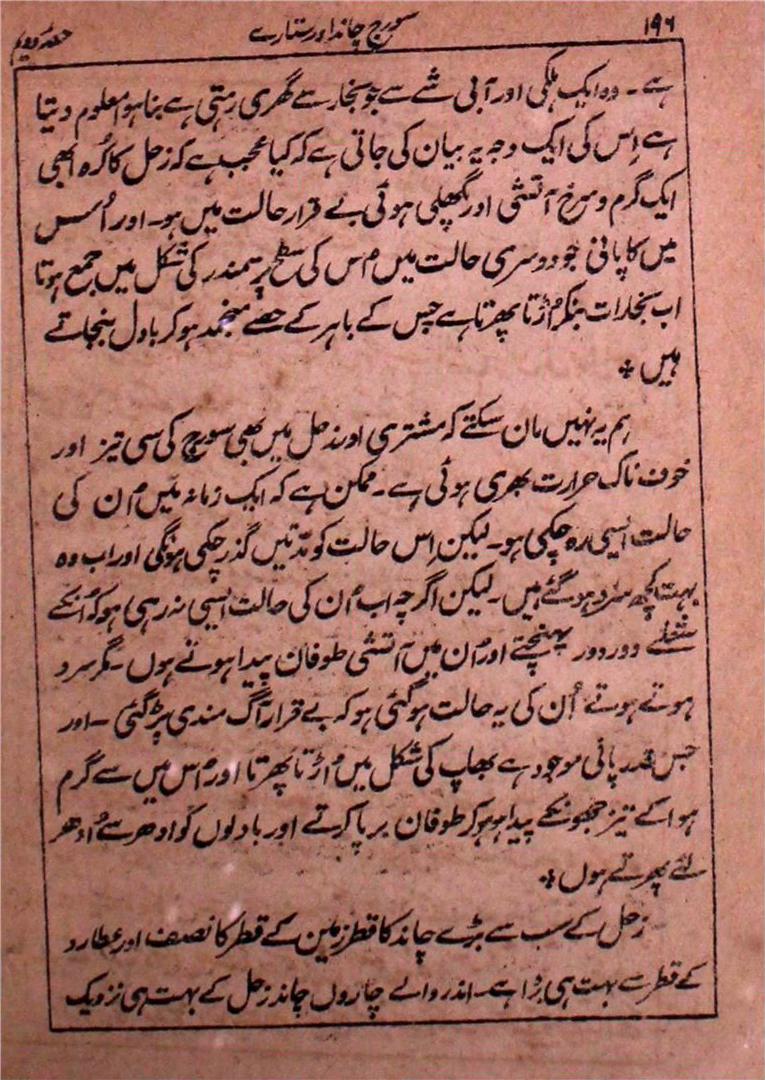 ۱۹۶ سورج چاند اور ستارے حصہ دویم
ہے۔ وہ ایک ہلکی اور آبی شے سے جو بخار سے گھری رہتی ہے بنا ہوا معلوم دیتا
ہے اِس کی ایک وجہ یہ بیان کی جاتی ہے کہ کیا عجب ہے کہ زحل کا کُرہ ابھی
ایک گرم و سرخ آتشی اور پگھلی ہوئی بے قرار حالت میں ہو۔ اور اُس
میں کا پانی جو دوسری حالت میں اُس کی سطح پر سمندر کی شکل میں جمع ہوتا
اب بخارات بنکر اُڑتا پھرتا ہے جس کے باہر کے حصے منجمد ہو کر بادل بنجاتے
ہیں *
ہم یہ نہیں مان سکتے کہ مشتری اور زحل میں بھی سورج کی سی تیز اور
خوف ناک حرارت بھری ہوئی ہے۔ ممکن ہے کہ ایک زمانہ میں اُن کی
حالت ایسی رہ چکی ہو۔ لیکن اِس حالت کو مدّتیں گذر چکی ہونگی اور اب وہ
بہت کچھ سرد ہو گئے ہیں۔ لیکن اگرچہ اب اُن کی حالت ایسی نہ رہی ہو کہ اُنکے
شعلے دور دور پہنچتے اور اُن میں آتشی طوفان پیدا ہوتے ہوں۔ مگر سرد
ہوتے ہوتے اُن کی یہ حالت ہو گئی ہو کہ بے قرار آگ مندی پڑ گئی۔ اور
جس قدر پانی موجود ہے بھاپ کی شکل میں اُڑتا پھرتا اور اُس میں سے گرم
ہوا کے تیز جھونکے پیدا ہو ہو کر طوفان برپا کرتے اور بادلوں کو ادھر سے اُدھر
لئے پھرتے ہوں *
زحل کے سب سے بڑے چاند کا قطر زمین کے قطر کا نصف اور عطارد
کے قطر سے بہت ہی بڑا ہے۔ اندر والے چاروں چاند زحل کے بہت ہی نزدیک